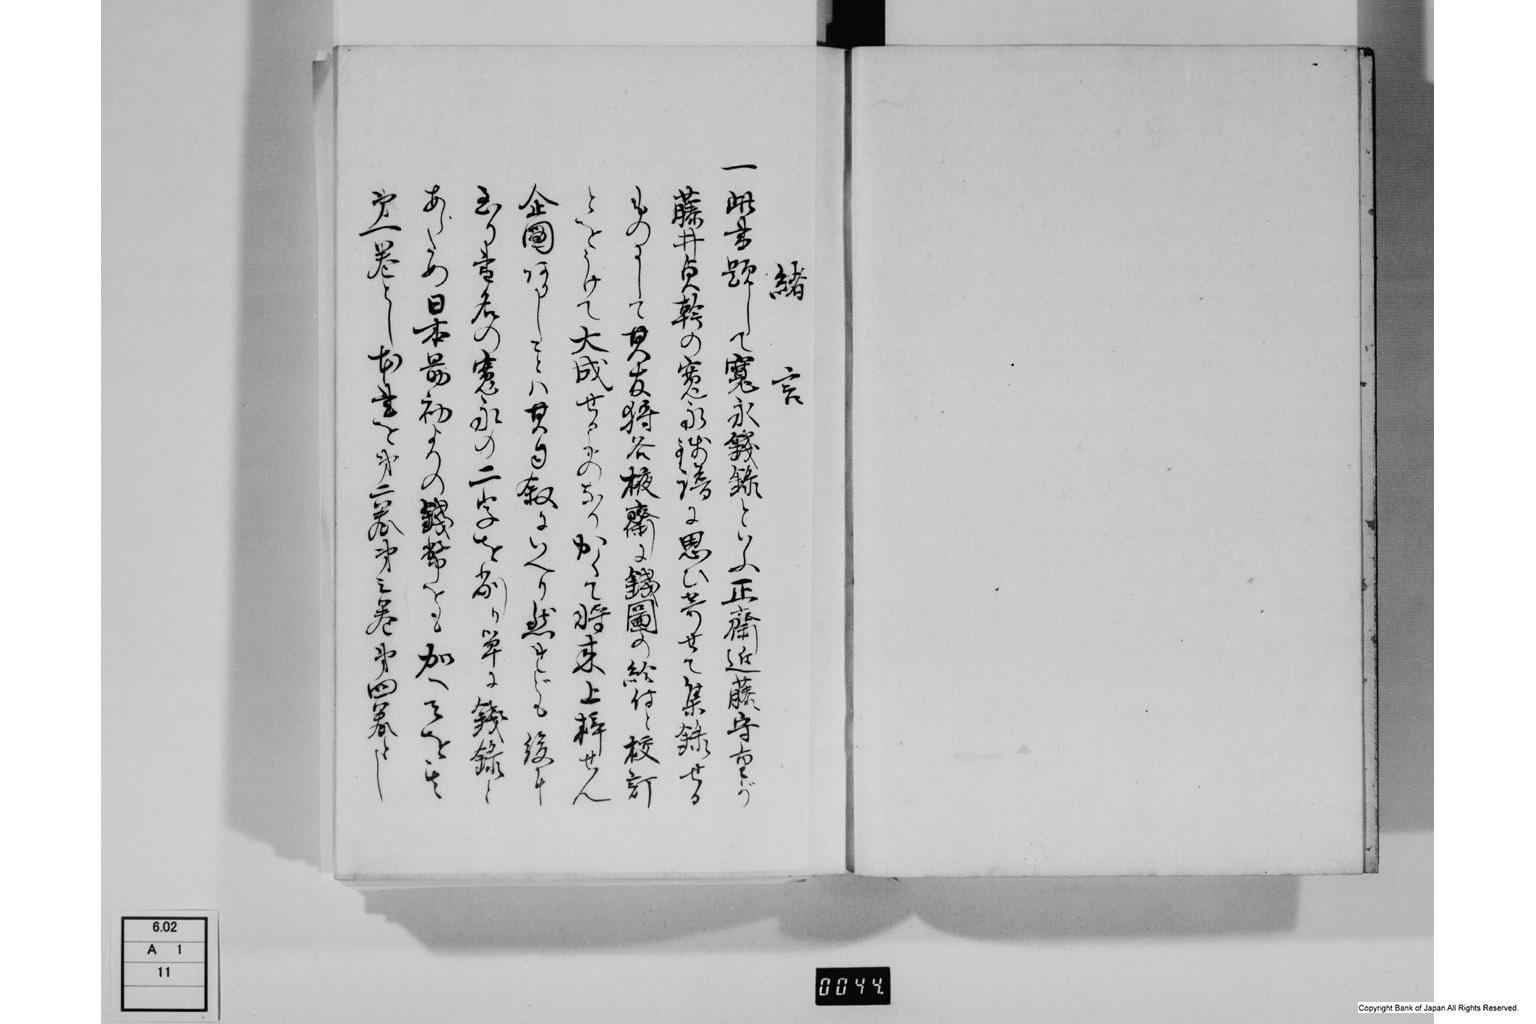 緒言
一此書題して寛永錢錄といふ正齋近藤守重が
藤井貞幹の寛永錢譜に思ひ寄せて集錄せる
ものにして其友狩谷棭齋に錢圖の給付と校訂
とをうけて大成せるものなりかくて將來上梓せん
企圖ありしことハ其自叙にいへり然れども後年
至り書名の寛永の二字を削り單に錢錄と
あらため日本最初よりの錢幣をも加へてそを
第一卷とし本書を第二卷第三卷第四卷とし
6.02
A 1
11
0044.
Copyright Bank of Japan All Rights Reserved.